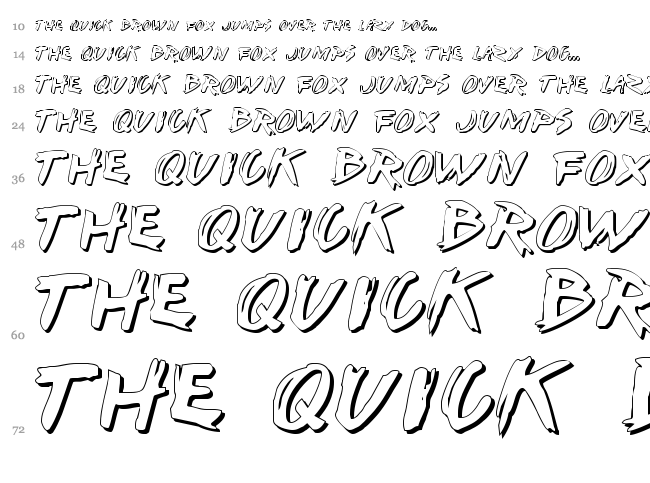 10 THE QUICK BROWN FOX JUMPS OVER THE LAZY DOG...
14 THE QUICK BROWN FOX JUMPS OVER THE LAZY DOG...
18 THE QUICK BROWN FOX JUMPS OVER THE LAZY
24 THE QUICK BROWN FOX JUMPS OVE
36 THE QUICK BROWN FOX
48 THE QUICK BROW
60 THE QUICK BR
72 THE QUICK